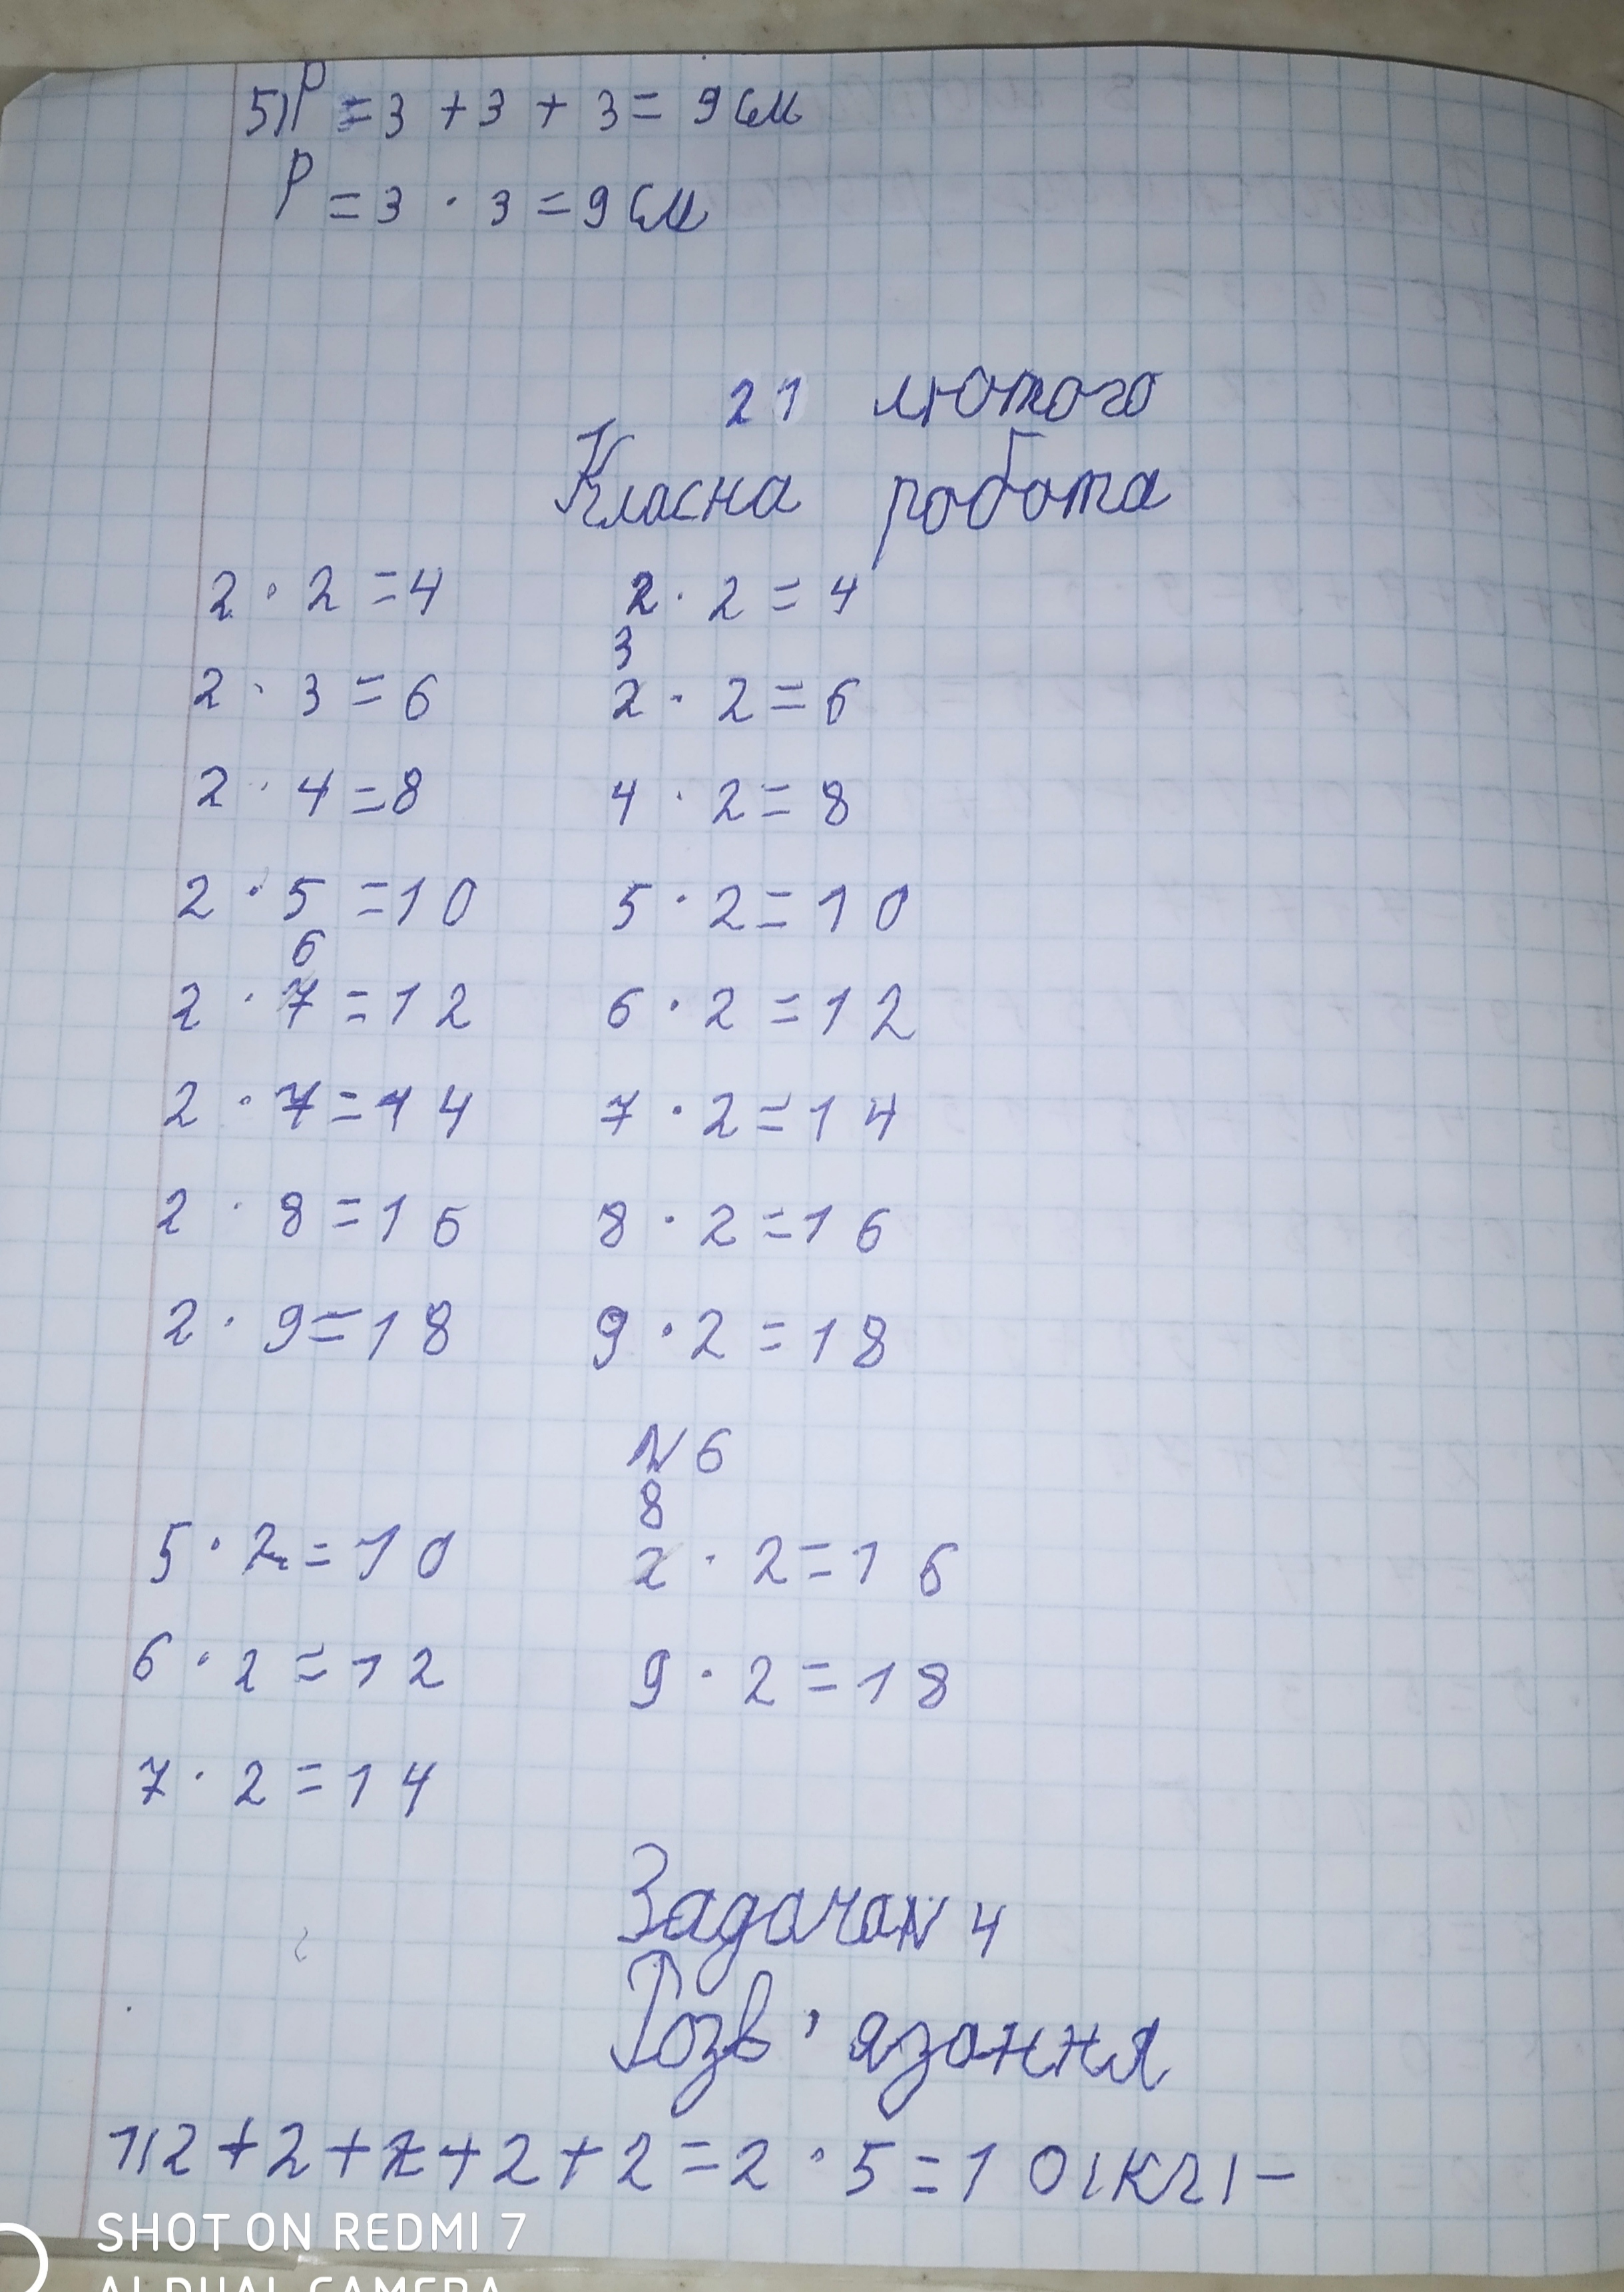 5) P = 3 + 3 + 3 = 9 см
P = 3 · 3 = 9 см
21 лютого
Класна робота
2 · 2 = 4 2 · 2 = 4
3
2 · 3 = 6 2 · 2 = 6
2 · 4 = 8 4 · 2 = 8
2 · 5 = 10 5 · 2 = 10
6
2 · 7 = 12 6 · 2 = 12
2 · 7 = 14 7 · 2 = 14
2 · 8 = 16 8 · 2 = 16
2 · 9 = 18 9 · 2 = 18
N 6
8
5 · 2 = 10 2 · 2 = 16
6 · 2 = 12 9 · 2 = 18
7 · 2 = 14
Задача N 4
Розв'язання
1) 2 + 2 + 2 + 2 + 2 = 2 · 5 = 10 (кг) –
SHOT ON REDMI 7
AI DUAL CAMERA